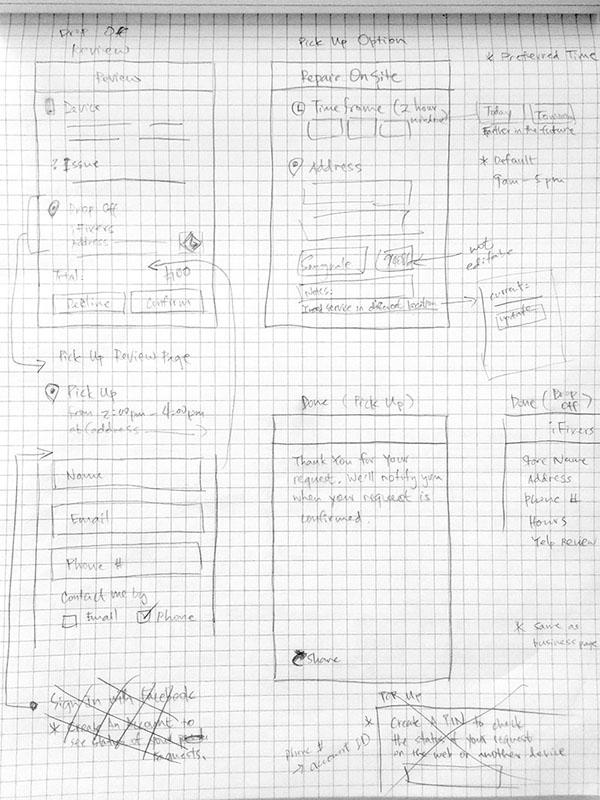 Drop Off
Review
Review
Device
? Issue
Drop Off
iFixers
Address
Total:
$100
Decline
Confirm
Pick Up Review Page
Pick Up
from 2:00pm - 4:00pm
at (address
Name
Email
Phone #
Contact me by
Email
Phone
Sign in with Facebook
* Create An Account to
see status of your
requests.
Pick Up Option
Repair OnSite
Time frame (2 hour
window)
Address
Sunnyvale
Notes:
I need service in different location
* Preferred Time
Today
Tomorrow
Further in the future
* Default
9am - 5pm
not
editable
current:
update
Done (Pick Up)
Thank You for your
request. We'll notify you
when your request is
confirmed.
Share
Done (Drop
Off)
iFixers
Store Name
Address
Phone #
Hours
Yelp Review
* same as
business page
Pick Up
* Create A PIN to check
the status of your request
on the web or another device
phone #
→ account ID